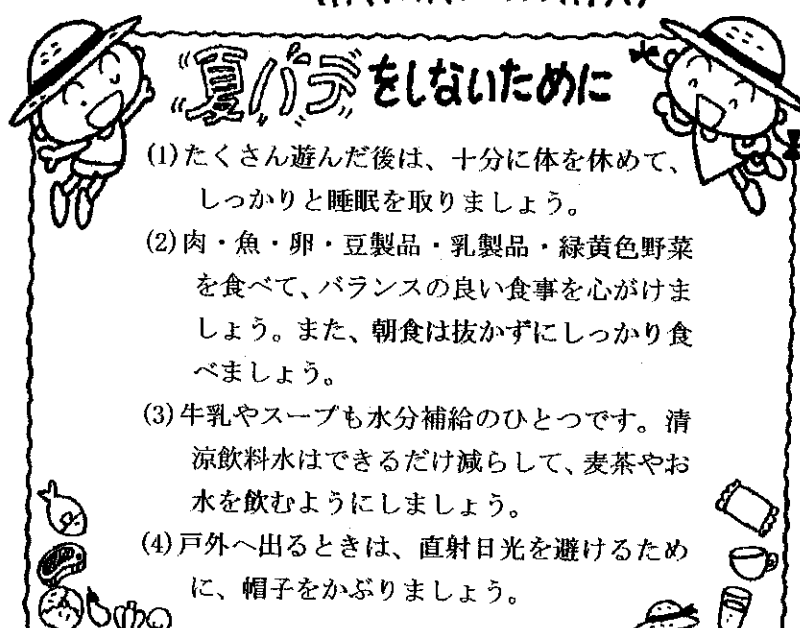 夏バテをしないために
(1)たくさん遊んだ後は、十分に体を休めて、
しっかりと睡眠を取りましょう。
(2)肉・魚・卵・豆製品・乳製品・緑黄色野菜
を食べて、バランスの良い食事を心がけま
しょう。また、朝食は抜かずにしっかり食
べましょう。
(3)牛乳やスープも水分補給のひとつです。清
涼飲料水はできるだけ減らして、麦茶やお
水を飲むようにしましょう。
(4)戸外へ出るときは、直射日光を避けるため
に、帽子をかぶりましょう。